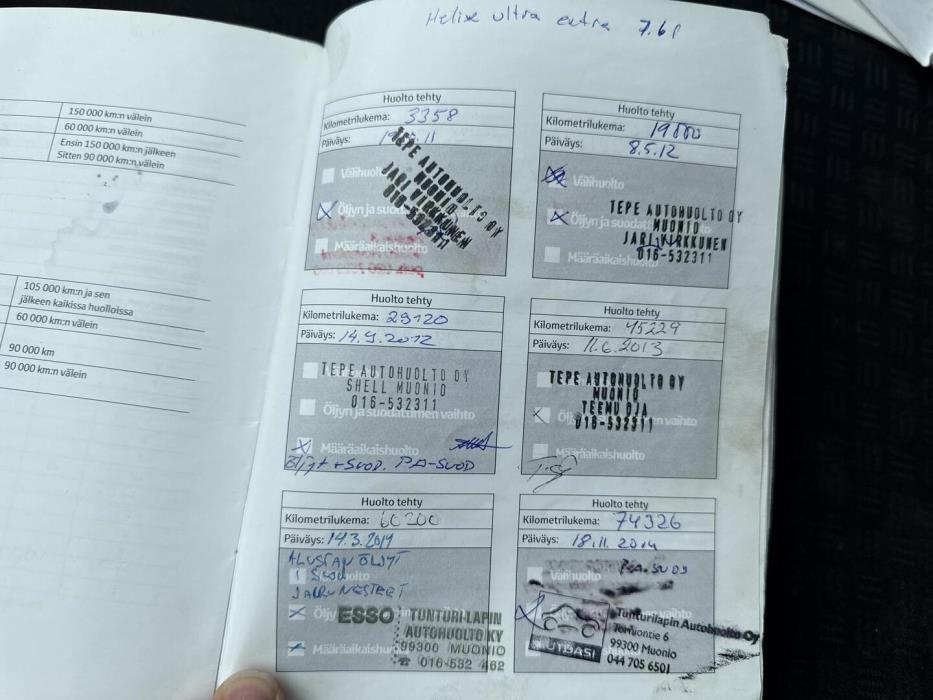 Helix ultra extra 7.6l
150 000 km:n välein
60 000 km:n välein
Ensin 150 000 km:n jälkeen
Sitten 90 000 km:n välein
105 000 km:n ja sen
jälkeen kaikissa huolloissa
60 000 km:n välein
90 000 km
90 000 km:n välein
Huolto tehty
Kilometrilukema: 3358
Päiväys:
Välihuolto
Öljyn ja
Määräaikaishuolto
TEPE AUTOHUOLTO OY
MUONIO
JARI VIRKKUNEN
016-532311
Huolto tehty
Kilometrilukema: 19000
Päiväys: 8.5.12
Välihuolto
Öljyn ja
Määräaikaishuolto
TEPE AUTOHUOLTO OY
MUONIO
JARI VIRKKUNEN
016-532311
Huolto tehty
Kilometrilukema: 29120
Päiväys: 14.9.2012
TEPE AUTOHUOLTO OY
SHELL MUONIO
016-532311
Öljyn ja suodattimen vaihto
Määräaikaishuolto
Öljyt + SUOD. PA-SUOD
Huolto tehty
Kilometrilukema: 45229
Päiväys: 11.6.2013
TEPE AUTOHUOLTO OY
MUONIO
TEEMU OJA
016-532311
vaihto
Määräaikaishuolto
Huolto tehty
Kilometrilukema: 60200
Päiväys: 14.3.2014
ALUSTAN ÖLJYT
JARRUNESTEET
Määräaikaishuolto
ESSO TUNTURI-LAPIN
AUTOHUOLTO KY
99300 MUONIO
☎ 016-532 462
Huolto tehty
Kilometrilukema: 74326
Päiväys: 18.11.2014
Välihuolto
vaihto
AUTOASI
Tunturilapin Autohuolto Oy
Torivontie 6
99300 Muonio
044 705 6501